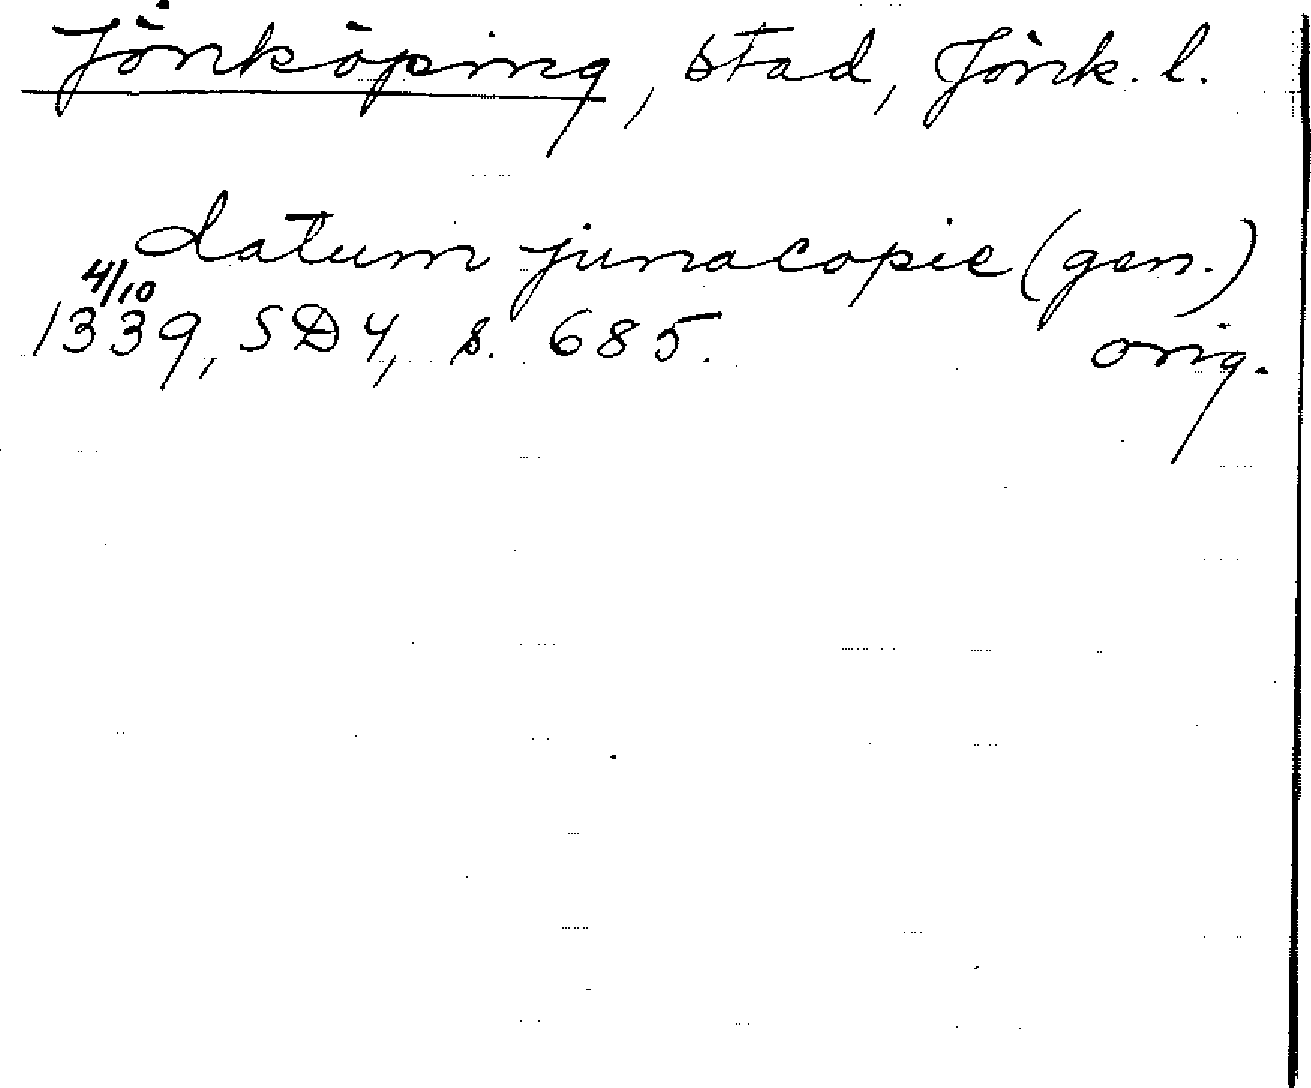 Jönköping, stad, Jönk. l.
datum junacopie (gen.)
4/10
1339, SD 4, s. 685. orig.